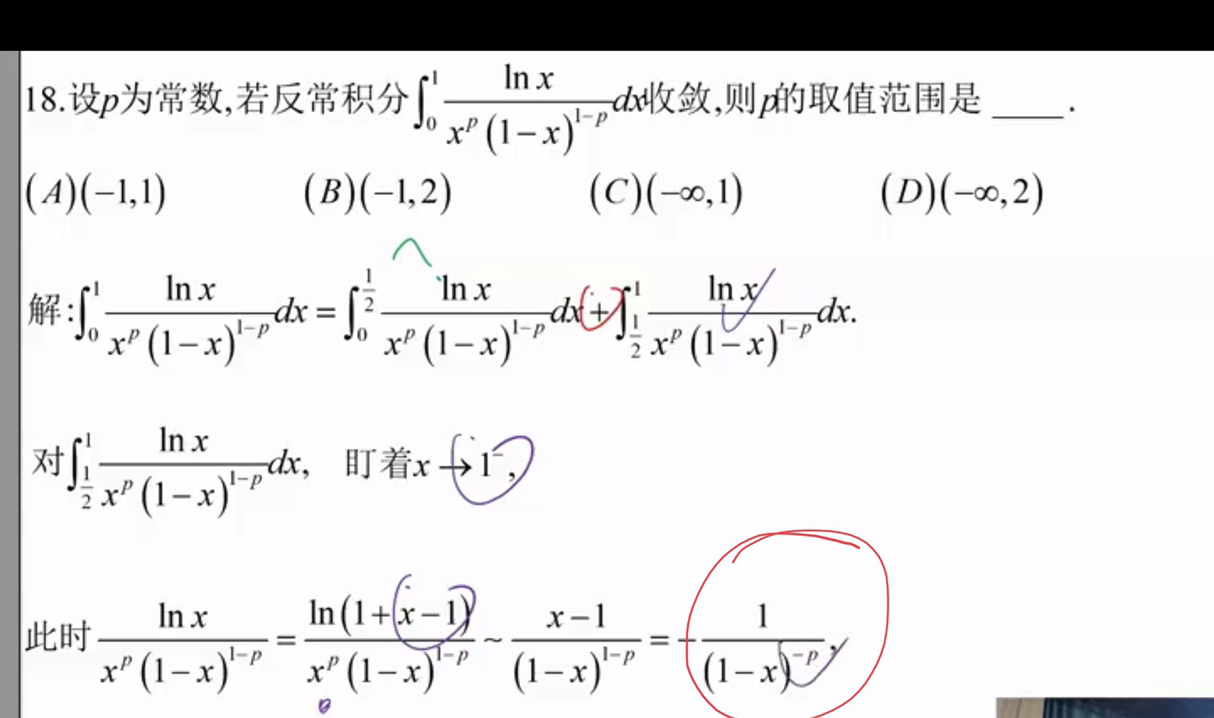 18.设p为常数,若反常积分∫₀¹ ln x / (xᵖ(1−x)¹⁻ᵖ) dx收敛,则p的取值范围是 ____ .
(A)(−1,1) (B)(−1,2) (C)(−∞,1) (D)(−∞,2)
解:∫₀¹ ln x / (xᵖ(1−x)¹⁻ᵖ) dx = ∫₀^(1/2) ln x / (xᵖ(1−x)¹⁻ᵖ) dx + ∫_(1/2)¹ ln x / (xᵖ(1−x)¹⁻ᵖ) dx.
对∫_(1/2)¹ ln x / (xᵖ(1−x)¹⁻ᵖ) dx, 盯着x → 1⁻,
此时 ln x / (xᵖ(1−x)¹⁻ᵖ) = ln(1+x−1) / (xᵖ(1−x)¹⁻ᵖ) ~ (x−1) / (1−x)¹⁻ᵖ = − 1 / (1−x)⁻ᵖ,